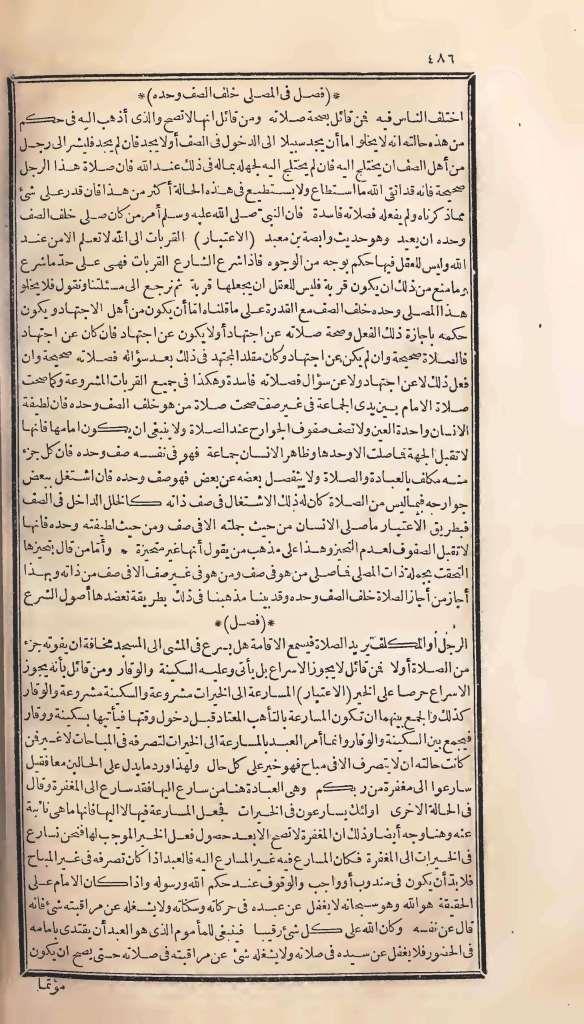 ٤٨٦
*(فصل فى المصلى خلف الصف وحده)*
اختلف الناس فيه فمن قائل بصحة صلاته ومن قائل انها لا تصح والذى أذهب اليه فى حكم
من هذه حالته انه لا يخلو اما أن يجد سبيلا الى الدخول فى الصف أولا يجد فان لم يجد فليشر الى رجل
من أهل الصف ان يختلج اليه فان لم يختلج اليه لجهله بماله فى ذلك عند الله فان صلاة هذا الرجل
صحيحة فانه قد اتقى الله ما استطاع ولا يستطيع فى هذه الحالة أكثر من هذا فان قدر على شئ
مما ذكرناه ولم يفعله فصلاته فاسدة فان النبي صلى الله عليه وسلم أمر من كان صلى خلف الصف
وحده ان يعيد وهو حديث وابصة بن معبد (الاعتبار) القربات الى الله لا تعلم الا من عند
الله وليس للعقل فيها حكم بوجه من الوجوه فاذا شرع الشارع القربات فهى على حد ما شرع
وما منع من ذلك ان يكون قربة فليس للعقل ان يجعلها قربة ثم نرجع الى مسئلتنا ونقول فلا يخلو
هذا المصلى وحده خلف الصف مع القدرة على ما قلناه اما أن يكون من أهل الاجتهاد ويكون
حكمه باجازة ذلك الفعل وصحة صلاته عن اجتهاد أولا يكون عن اجتهاد فان كان عن اجتهاد
فالصلاة صحيحة وان لم يكن عن اجتهاد وكان مقلد المجتهد فى ذلك بعد سؤاله فصلاته صحيحة وان
فعل ذلك لا عن اجتهاد ولا عن سؤال فصلاته فاسدة وهكذا فى جميع القربات المشروعة وكما صحت
صلاة الامام بين يدى الجماعة فى غير صف صحت صلاة من هو خلف الصف وحده فان لطيفة
الانسان واحدة العين ولا تصف صفوف الجوارح عند الصلاة ولا ينبغى ان يكون امامها فانها
لا تقبل الجهة فما صلت الا وحدها وظاهر الانسان جماعة فهو فى نفسه صف وحده فان كل جزء
منه مكلف بالعبادة والصلاة ولا ينفصل بعضه عن بعض فهو صف وحده فان اشتغل ببعض
جوارحه فيما ليس من الصلاة كان له ذلك الاشتغال فى صف ذاته كالخلل الداخل فى الصف
فبطريق الاعتبار ما صلى الانسان من حيث جملته الا فى صف ومن حيث لطيفته وحده فانها
لا تقبل الصفوف لعدم التحيز وهذا على مذهب من يقول أنها غير متحيزة * وأما من قال بتحيزها
التحقت بجملة ذات المصلى فما صلى من هو فى صف ومن هو فى غير صف الا فى صف من ذاته وبهذا
أجاز من أجاز الصلاة خلف الصف وحده وقد بينا مذهبنا فى ذلك بطريقة تعضدها أصول الشرع
*(فصل)*
الرجل أو المكلف يريد الصلاة فيسمع الاقامة هل يسرع فى المشى الى المسجد مخافة ان يفوته جزء
من الصلاة أولا فمن قائل لا يجوز الاسراع بل يأتى وعليه السكينة والوقار ومن قائل بأنه يجوز
الاسراع حرصا على الخير (الاعتبار) المسارعة الى الخيرات مشروعة والسكينة مشروعة والوقار
كذلك والجمع بينهما ان تكون المسارعة بالتأهب المعتاد قبل دخول وقتها فيأتيها بسكينة ووقار
فيجمع بين السكينة والوقار وانما أمر العبد بالمسارعة الى الخيرات لتصرفه فى المباحات لا غير فمن
كانت حالته ان لا يتصرف الا فى مباح فهو خير على كل حال ولهذا ورد ما يدل على الحالين معا فقيل
سارعوا الى مغفرة من ربكم وهى العبادة هنا من سارع اليها فقد سارع الى المغفرة وقال
فى الحالة الاخرى اولئك يسارعون فى الخيرات فجعل المسارعة فيها لا اليها فانها ما هى نائية
عنه وهنا وجه أيضا وذلك ان المغفرة لا تصح الا بعد حصول فعل الخير الموجب لها فنحن نسارع
فى الخيرات الى المغفرة فكان المسارع فيه غير المسارع اليه فالعبد اذا كان تصرفه فى غير المباح
فلا بد أن يكون فى مندوب أو واجب والوقوف عند حكم الله ورسوله واذا كان الامام على
الحقيقة هو الله وهو سبحانه لا يغفل عن عبده فى حركاته وسكناته ولا يشغله عن مراقبته شئ فانه
قال عن نفسه وكان الله على كل شئ رقيبا فينبغى للمأموم الذى هو العبد أن يقتدى بامامه
فى الحضور فلا يغفل عن سيده فى صلاته ولا يشغله شئ عن مراقبته فى صلاته حتى يصح ان يكون
مؤتما